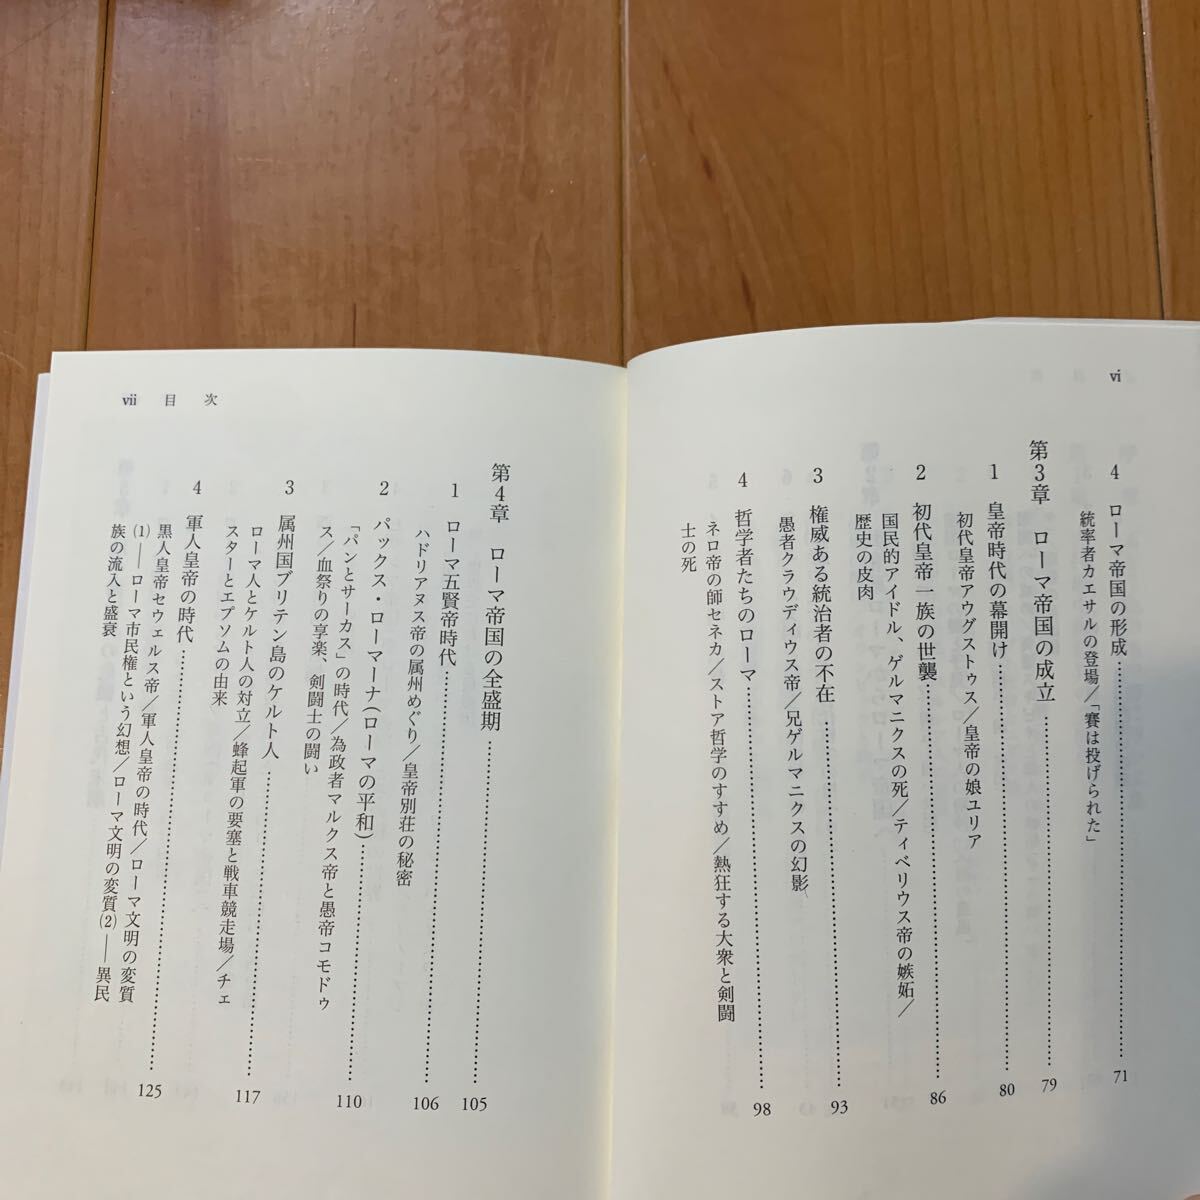 vi
4 ローマ帝国の形成 71
統率者カエサルの登場/「賽は投げられた」
第3章 ローマ帝国の成立 79
1 皇帝時代の幕開け 80
初代皇帝アウグストゥス/皇帝の娘ユリア
2 初代皇帝一族の世襲 86
国民的アイドル、ゲルマニクスの死/ティベリウス帝の嫉妬/
歴史の皮肉
3 権威ある統治者の不在 93
愚者クラウディウス帝/兄ゲルマニクスの幻影
4 哲学者たちのローマ 98
ネロ帝の師セネカ/ストア哲学のすすめ/熱狂する大衆と剣闘
士の死
vii 目次
第4章 ローマ帝国の全盛期 105
1 ローマ五賢帝時代 106
ハドリアヌス帝の属州めぐり/皇帝別荘の秘密
2 パックス・ローマーナ(ローマの平和) 110
「パンとサーカス」の時代/為政者マルクス帝と愚帝コモドゥ
ス/血祭りの享楽、剣闘士の闘い
3 属州国ブリテン島のケルト人 117
ローマ人とケルト人の対立/蜂起軍の要塞と戦車競走場/チェ
スターとエプソムの由来
4 軍人皇帝の時代 125
黒人皇帝セウェルス帝/軍人皇帝の時代/ローマ文明の変質
(1)——ローマ市民権という幻想/ローマ文明の変質(2)——異民
族の流入と盛衰